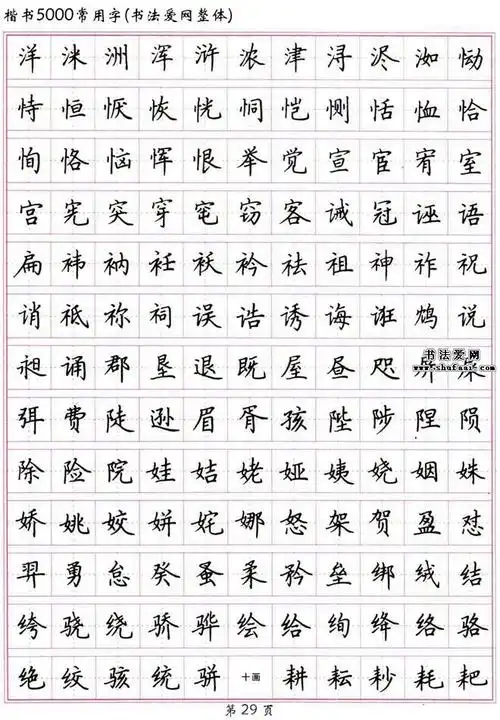 楷书5000常用字(书法爱网整体)
洋 洣 洲 浑 浒 浓 津 浔 浕 洳 恸
恃 恒 恹 恢 恍 恫 恺 恻 恬 恤 恰
恂 恪 恼 恽 恨 举 觉 宣 宦 宥 室
宫 宪 突 穿 窀 窃 客 诫 冠 诬 语
扁 袆 衲 衽 袄 衿 祛 祖 神 祚 祝
诮 祗 祢 祠 误 诰 诱 诲 诳 鸩 说
昶 诵 郡 垦 退 既 屋 昼 咫
书法爱网
www.shufaai5.com
弭 费 陡 逊 眉 胥 孩 陛 陟 陧 陨
除 险 院 娃 姞 姥 娅 姨 娆 姻 姝
娇 姚 姣 姘 姹 娜 怒 架 贺 盈 怼
羿 勇 怠 癸 蚤 柔 矜 垒 绑 绒 结
绔 骁 绕 骄 骅 绘 给 绚 绛 络 骆
绝 绞 骇 统 骈 十画 耕 耘 耖 耗 耙
第29页